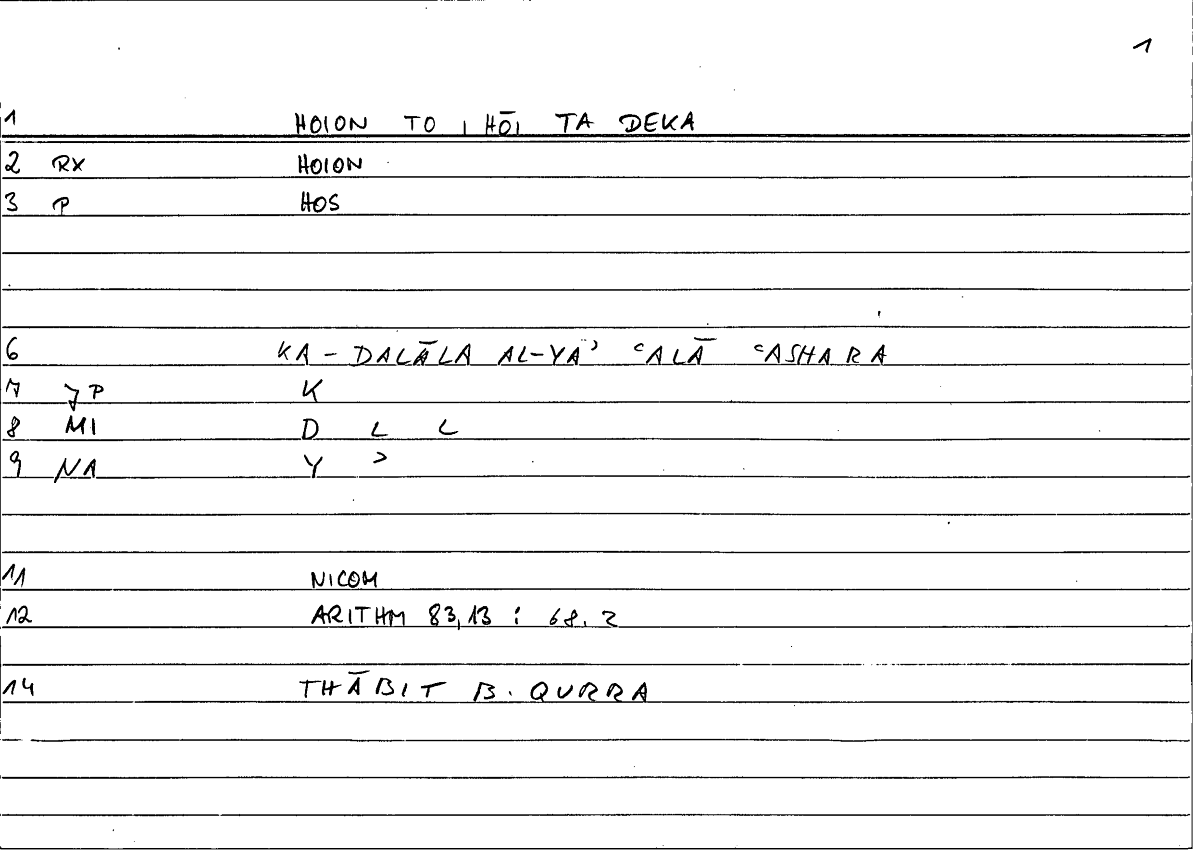 1
1 HOION TO ı HŌı TA DEKA
2 RX HOION
3 P HOS
6 KA-DALĀLA AL-YĀʾ ʿALĀ ʿASHARA
7 JP K
8 MI D L L
9 NA Y ʾ
11 NICOM
12 ARITHM 83,13 : 68.2
14 THĀBIT B. QURRA